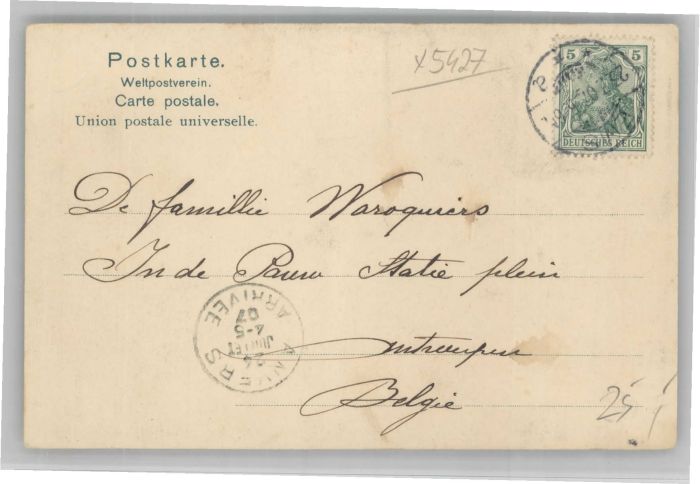 Postkarte.
Weltpostverein.
Carte postale.
Union postale universelle.
x5427
5 5
DEUTSCHES REICH
De famillie Waroquiers
In de Pauw Statie plein
Antwerpen
Belgie
ANVERS
24
JUILLET
4-5
07
ARRIVEE
25